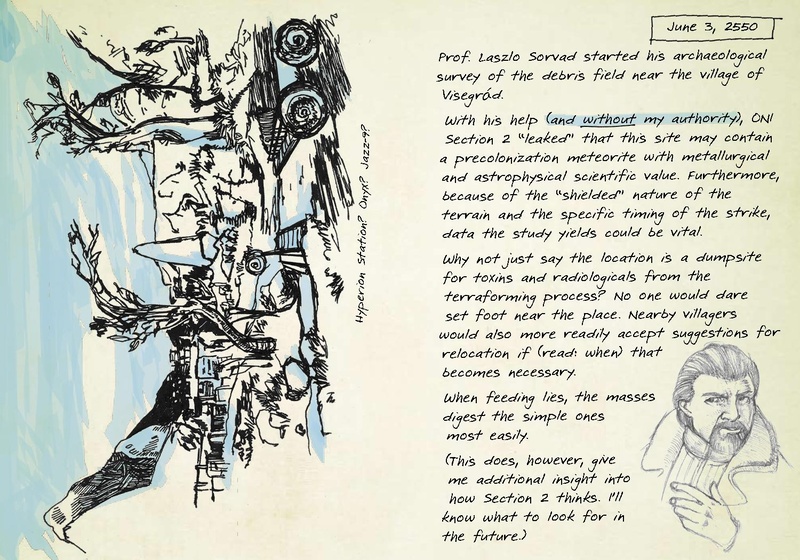 June 3, 2550
Prof. Laszlo Sorvad started his archaeological
survey of the debris field near the village of
Visegrád.
With his help (and without my authority), ONI
Section 2 "leaked" that this site may contain
a precolonization meteorite with metallurgical
and astrophysical scientific value. Furthermore,
because of the "shielded" nature of the
terrain and the specific timing of the strike,
data the study yields could be vital.
Why not just say the location is a dumpsite
for toxins and radiologicals from the
terraforming process? No one would dare
set foot near the place. Nearby villagers
would also more readily accept suggestions for
relocation if (read: when) that
becomes necessary.
When feeding lies, the masses
digest the simple ones
most easily.
(This does, however, give
me additional insight into
how Section 2 thinks. I'll
know what to look for in
the future.)
Hyperion Station? Onyx? Jazz-9?